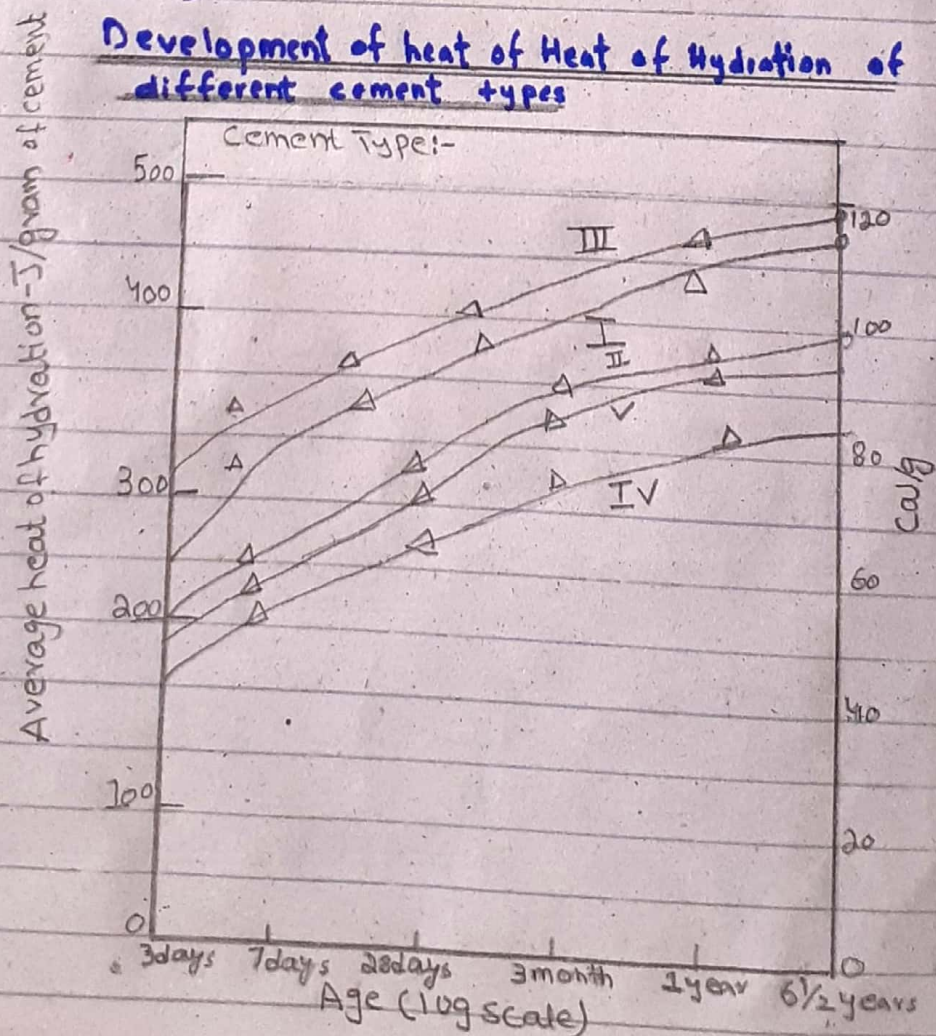 Development of heat of Heat of Hydration of
different cement types
Cement Type:-
Average heat of hydration-J/gram of cement
500
400
300
200
100
0
III
I
II
V
IV
120
100
80
60
40
20
0
Cal/g
3days 7days 28days 3month 1year 6½ years
Age (log scale)